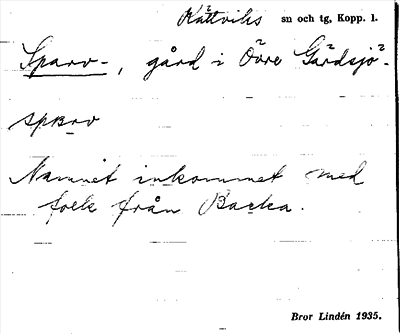 Rättviks sn och tg, Kopp. l.
Sparv-, gård i Övre Gärdsjö-.
sparv
Namnet inkommet med
folk från Backa.
Bror Lindén 1935.